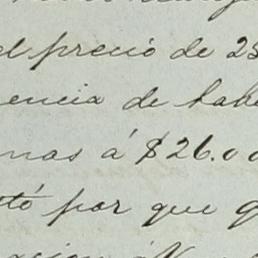 el precio de 25
encia de habe
nas á $26.00
tó por que q